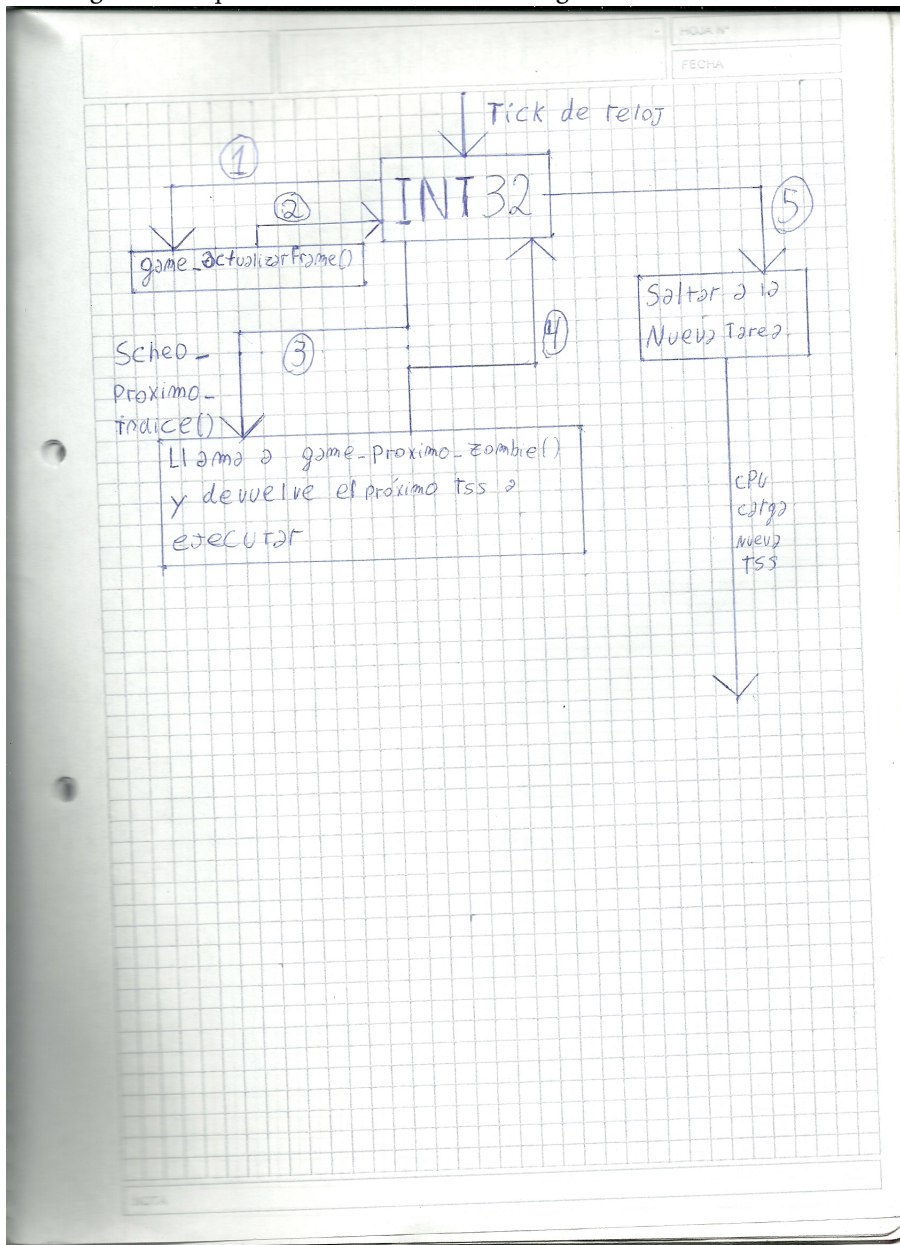 HOJA Nº
FECHA
Tick de reloj
1
INT 32
2
5
game_actualizarFrame()
Saltar a la
Nueva Tarea
3
4
Sched_
Proximo_
indice()
Llama a game_proximo_zombie()
y devuelve el próximo tss a
ejecutar
CPU
carga
nueva
TSS
NOTA